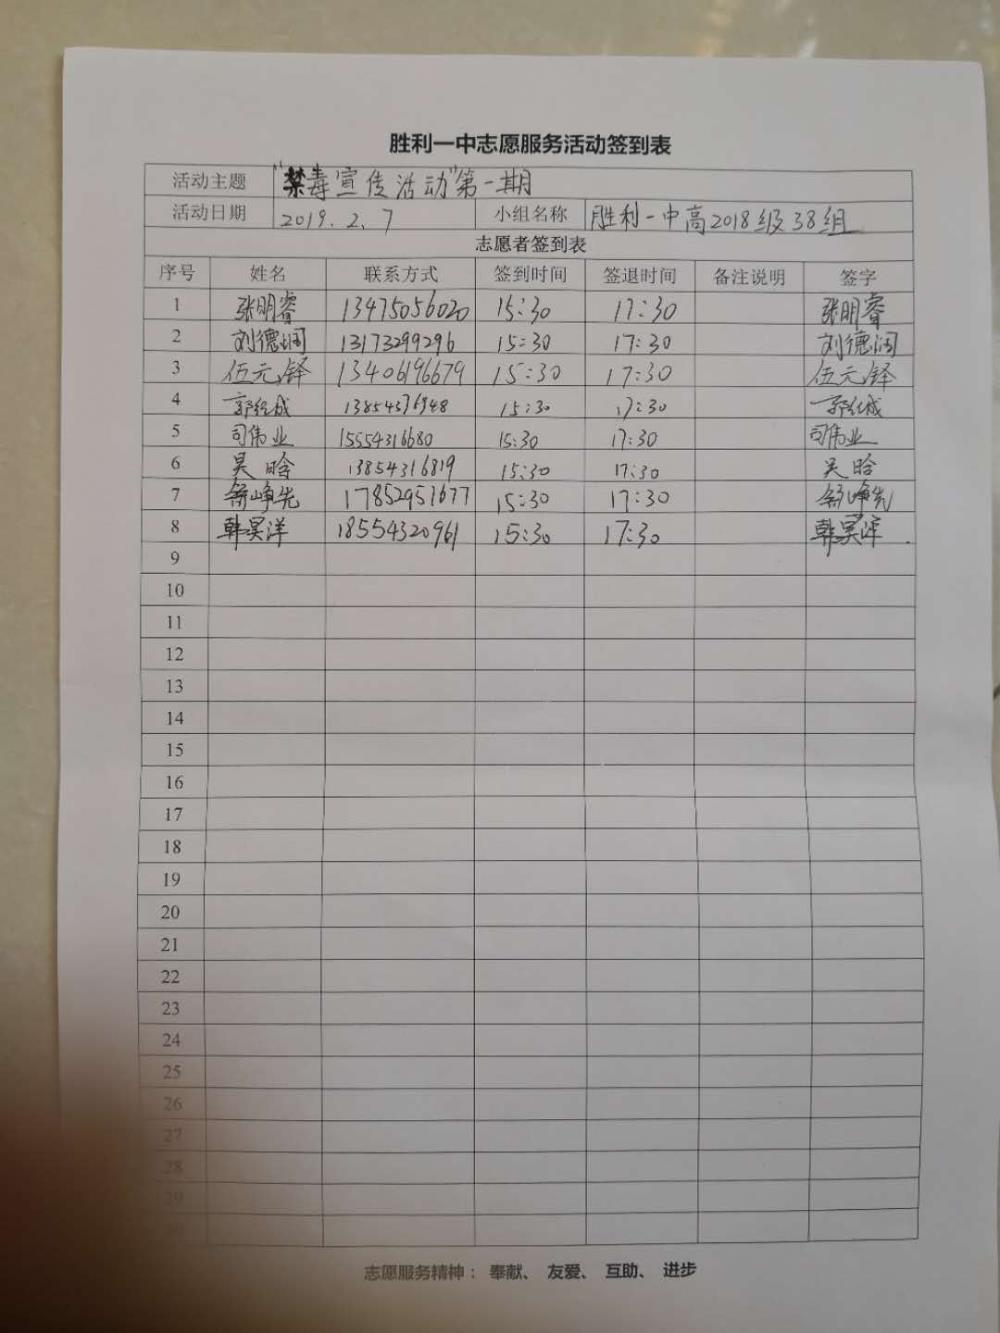 胜利一中志愿服务活动签到表
活动主题 "禁毒宣传活动"第一期
活动日期 2019.2.7 小组名称 胜利一中高2018级38组
志愿者签到表
序号 姓名 联系方式 签到时间 签退时间 备注说明 签字
1 张明睿 13475056020 15:30 17:30 张明睿
2 刘德润 13173299296 15:30 17:30 刘德润
3 伍元铎 13406196679 15:30 17:30 伍元铎
4 15:30 17:30
5 司伟业 15554316680 15:30 17:30 司伟业
6 吴晗 13854316819 15:30 17:30 吴晗
7 17852951677 15:30 17:30
8 韩昊洋 18554320961 15:30 17:30 韩昊洋
9
10
11
12
13
14
15
16
17
18
19
20
21
22
23
24
25
26
27
28
29
志愿服务精神： 奉献、 友爱、 互助、 进步